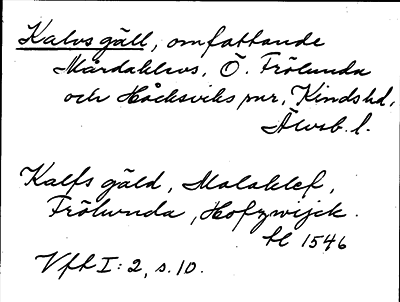 Kalvs gäll, omfattande
Mårdaklevs, Ö. Frölunda
och Håcksviks snr, Kinds hd,
Älvsb. l.
Kalfs gäld, Malaklef,
Frölunda, Hofzwijck.
hl 1546
VFH I: 2, s. 10.